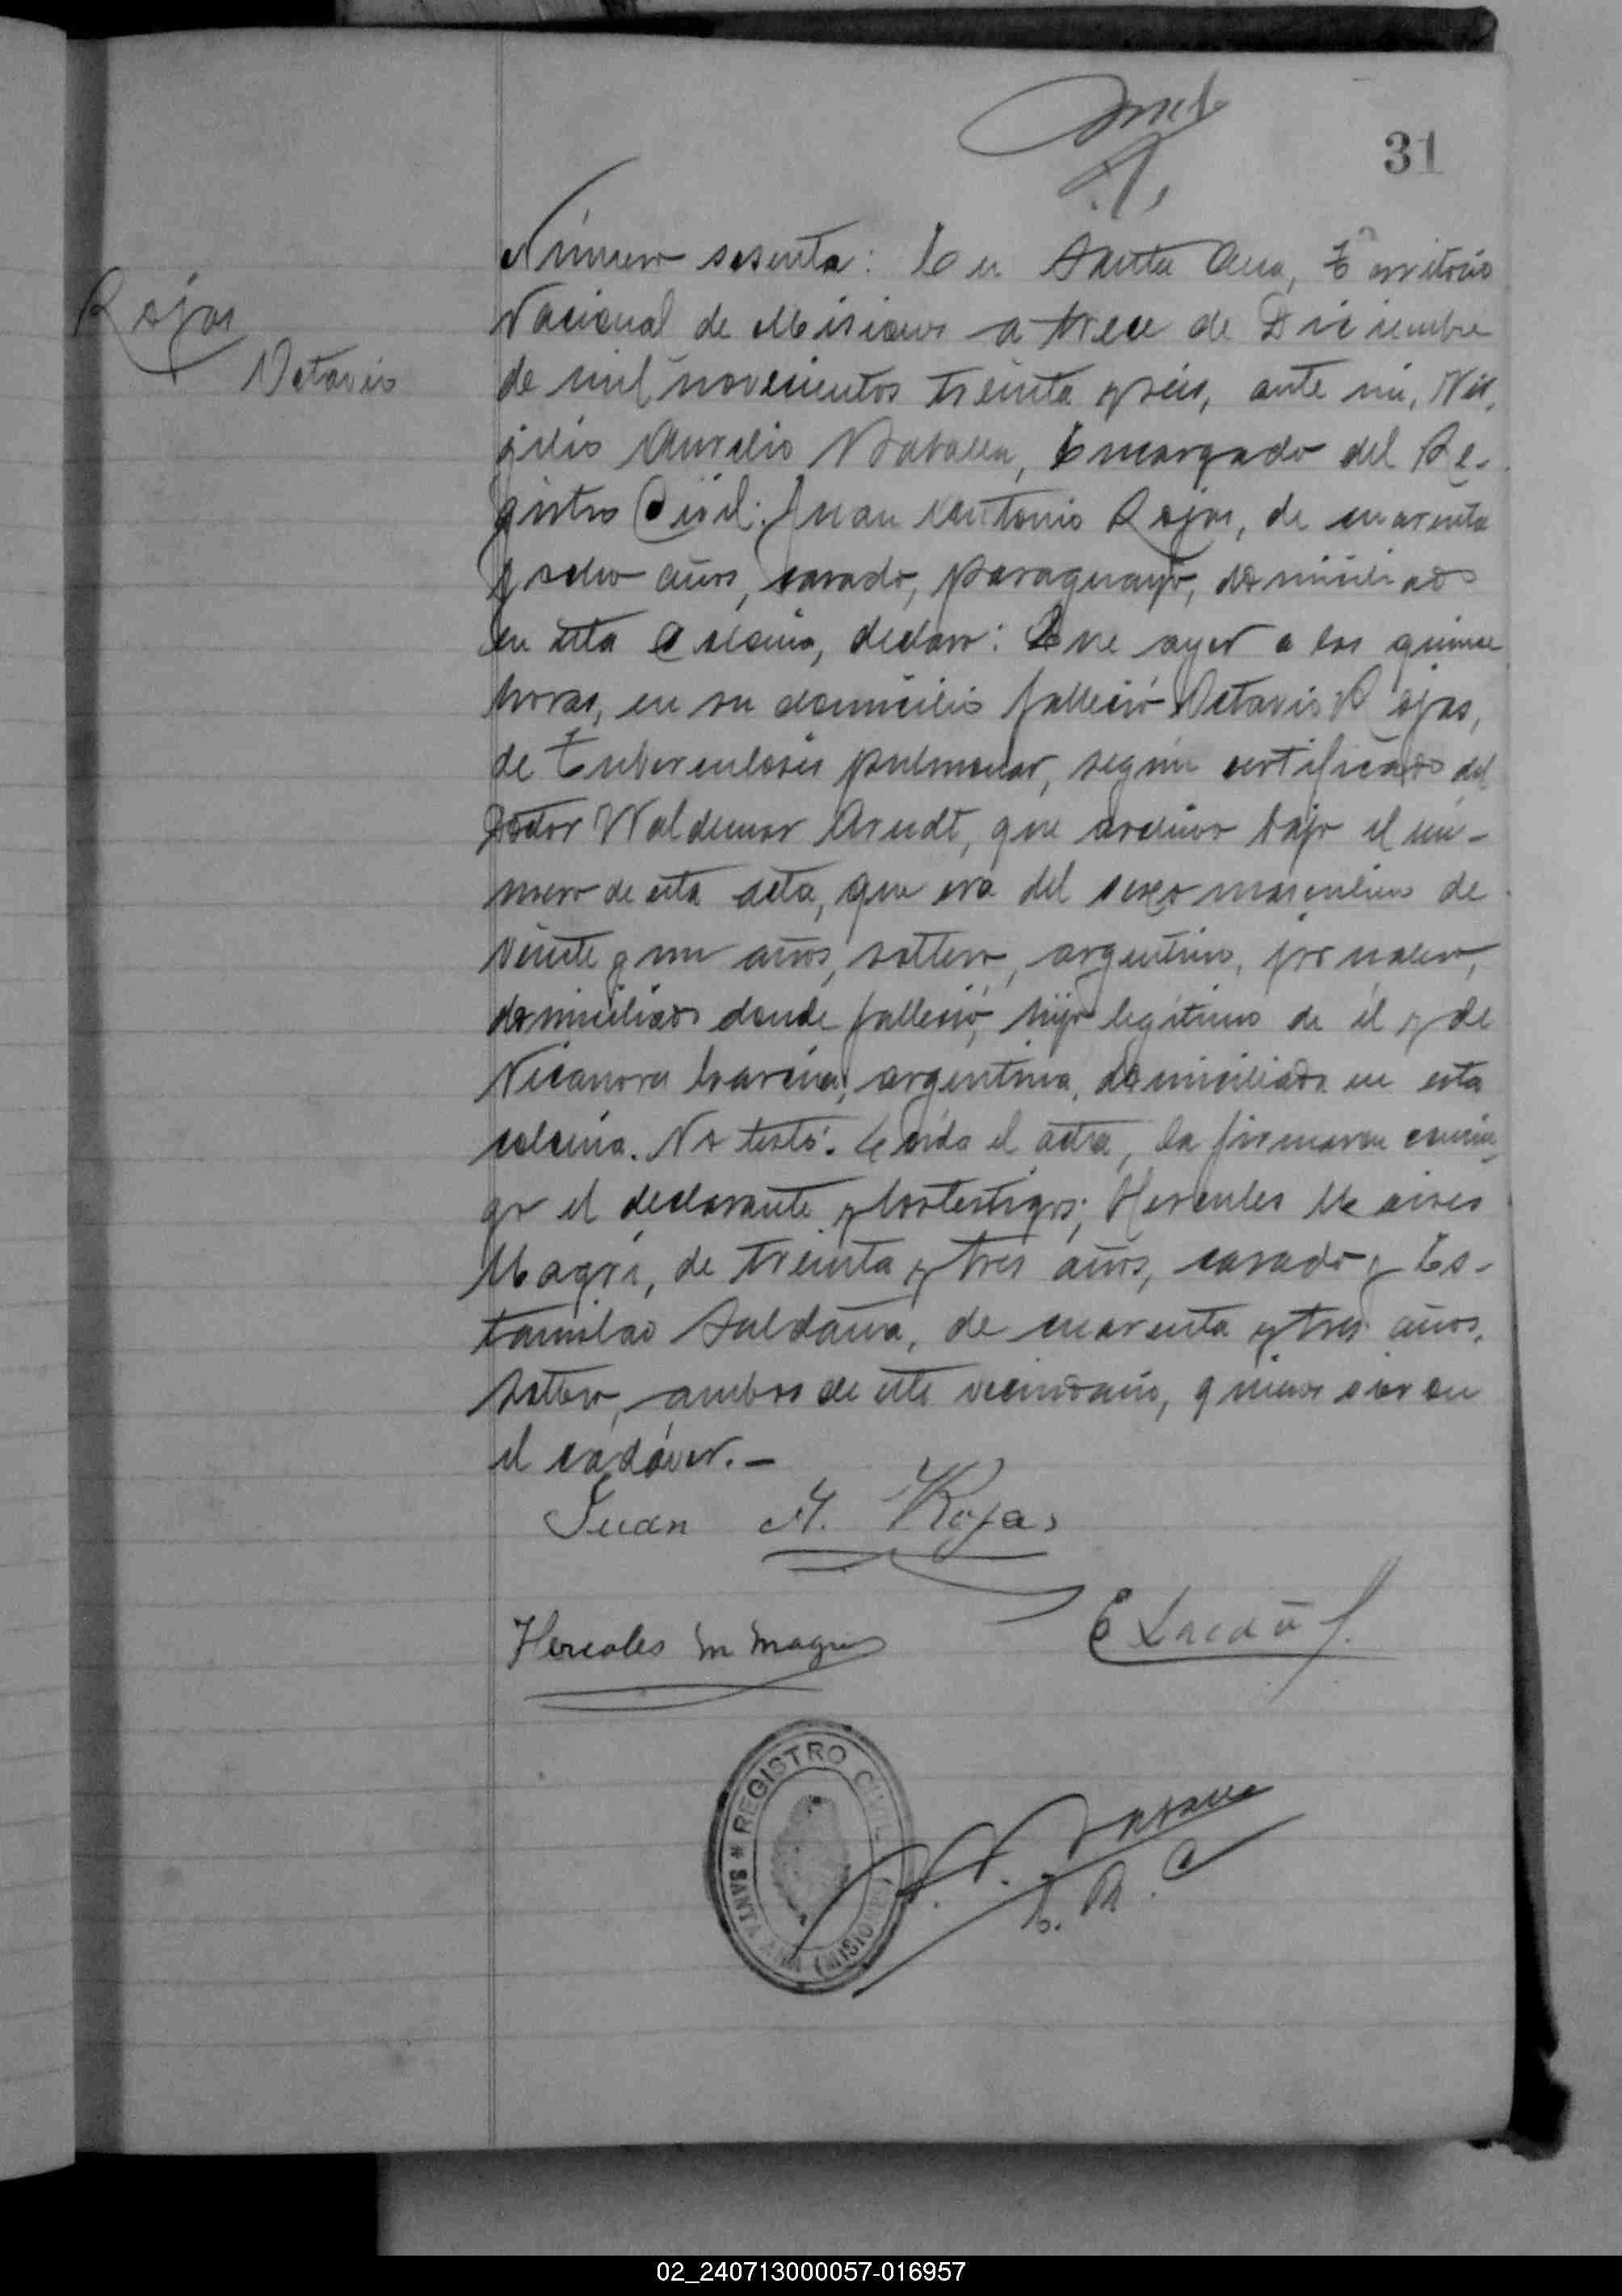 31
Rojas
Octavio
Número sesenta: En Santa Ana, Territorio
Nacional de Misiones a trece de Diciembre
de mil novecientos treinta y seis, ante mi, Vir-
gilio Aurelio, Encargado del Re-
gistro Civil: Juan Antonio Rojas, de cuarenta
y ocho años, casado, paraguayo, domiciliado
en esta Colonia, declaro: Que ayer a las quince
horas, en su domicilio falleció Octavio Rojas,
de Tuberculosis pulmonar, según certificado del
Doctor Waldemar Arndt, que archivo bajo el nú-
mero de esta acta, que era del sexo masculino de
veinte y un años, soltero, argentino, jornalero,
domiciliado donde falleció, hijo legítimo de él y de
Nicanora, argentina, domiciliada en esta
colonia. No testó. Leida el acta, la firmaron conmi-
go el declarante y los testigos; Hercules
Magri, de treinta y tres años, casado y Es-
tanislao Saldaña, de cuarenta y tres años,
soltero, ambos de este vecindario, quienes vieron
el cadáver.-
Juan A. Rojas
Hercoles M Magri
E. R. C
REGISTRO CIVIL
* SANTA ANA (MISIONES)
02_240713000057-016957